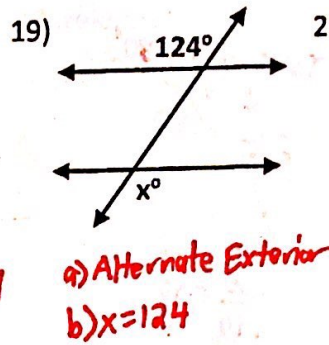 19)
124°
2
x°
a) Alternate Exterior
b) x=124